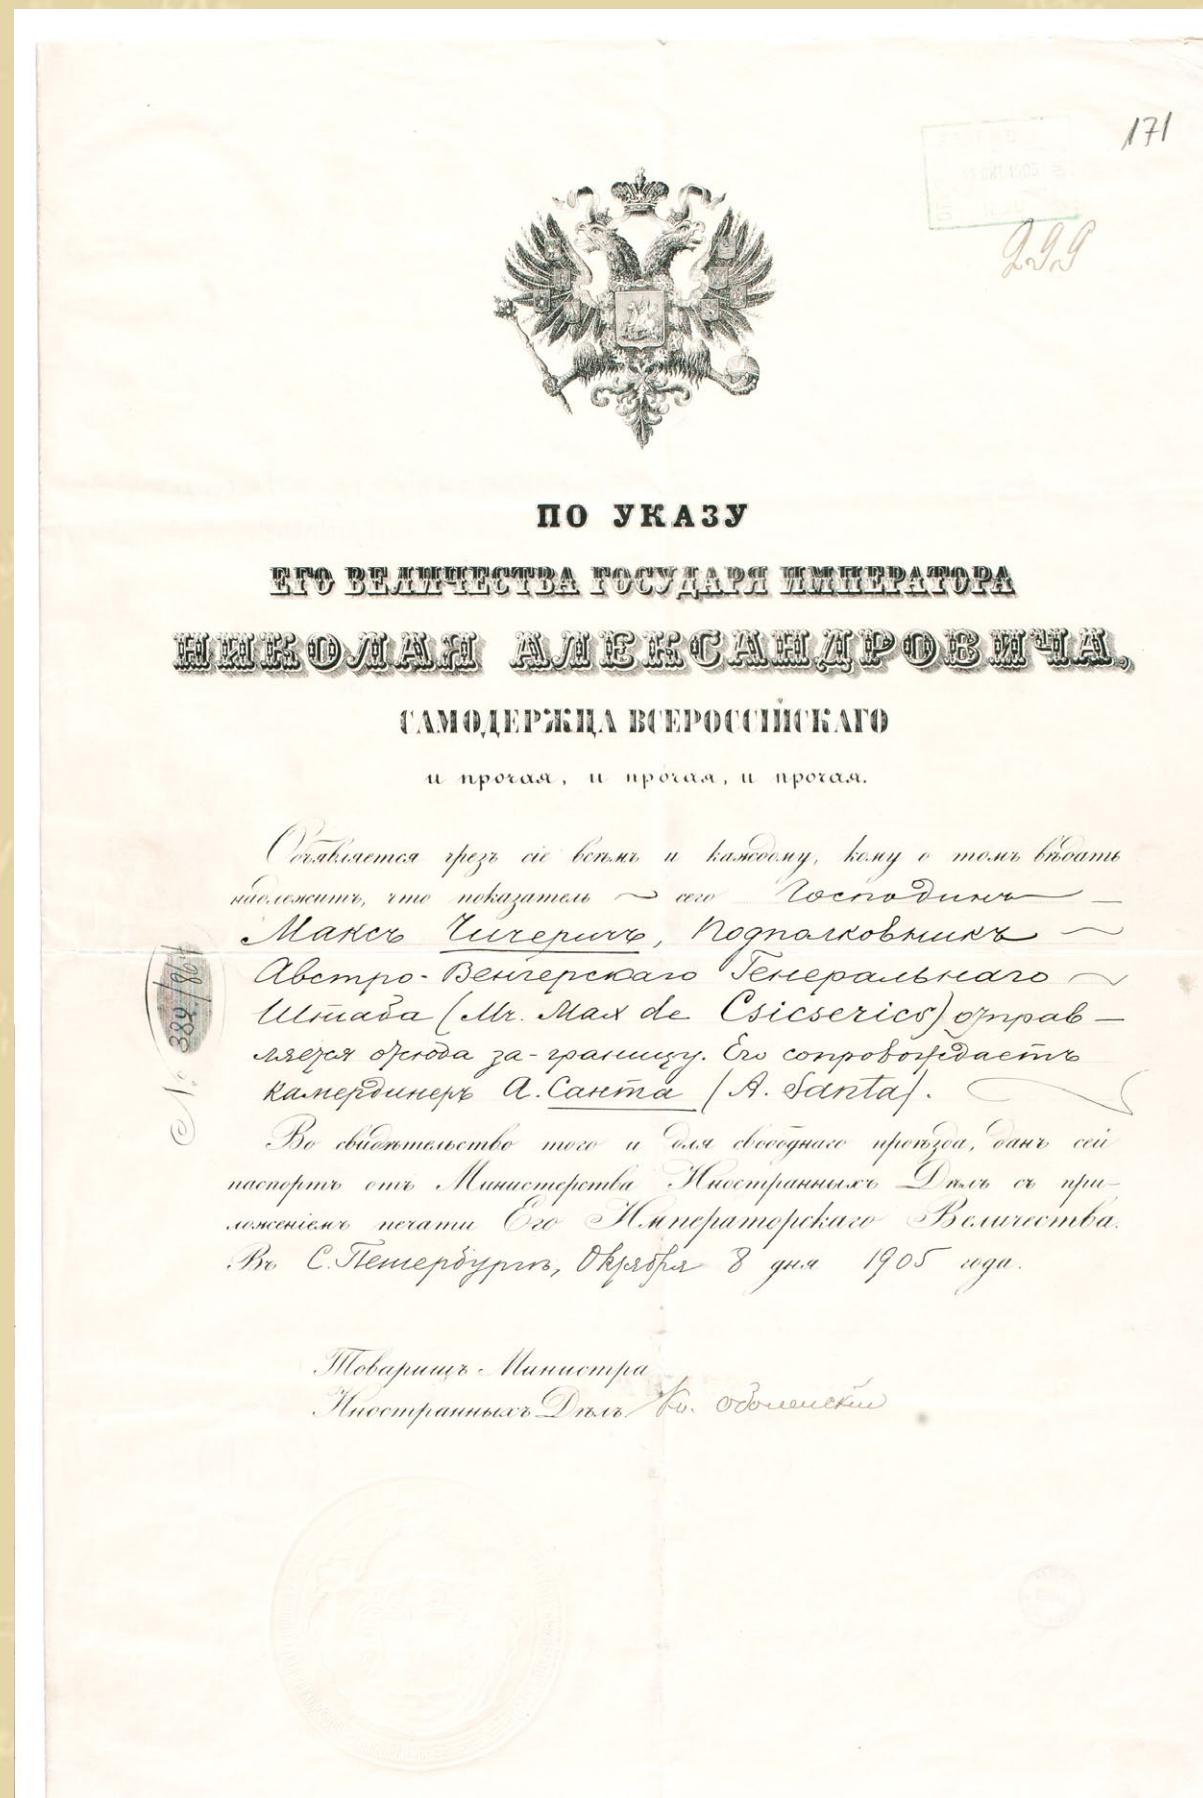 171
299
ПО УКАЗУ
ЕГО ВЕЛИЧЕСТВА ГОСУДАРЯ ИМПЕРАТОРА
НИКОЛАЯ АЛЕКСАНДРОВИЧА,
САМОДЕРЖЦА ВСЕРОССІЙСКАГО
и прочая, и прочая, и прочая.
Объявляется чрезъ сіе всѣмъ и каждому, кому о томъ вѣдать
надлежитъ, что показатель сего Господинъ
Максъ Чичеричъ, Подполковникъ
Австро-Венгерскаго Генеральнаго
Штаба (Mr. Max de Csicserics) отправ-
ляется отсюда за-границу. Его сопровождаетъ
камердинеръ А. Санта (A. Santa).
Во свидѣтельство того и для свободнаго проѣзда, данъ сей
паспортъ отъ Министерства Иностранныхъ Дѣлъ съ при-
ложеніемъ печати Его Императорскаго Величества.
Въ С. Петербургѣ, Октября 8 дня 1905 года.
№ 382/864
Товарищъ Министра
Иностранныхъ Дѣлъ Кн. Оболенскій